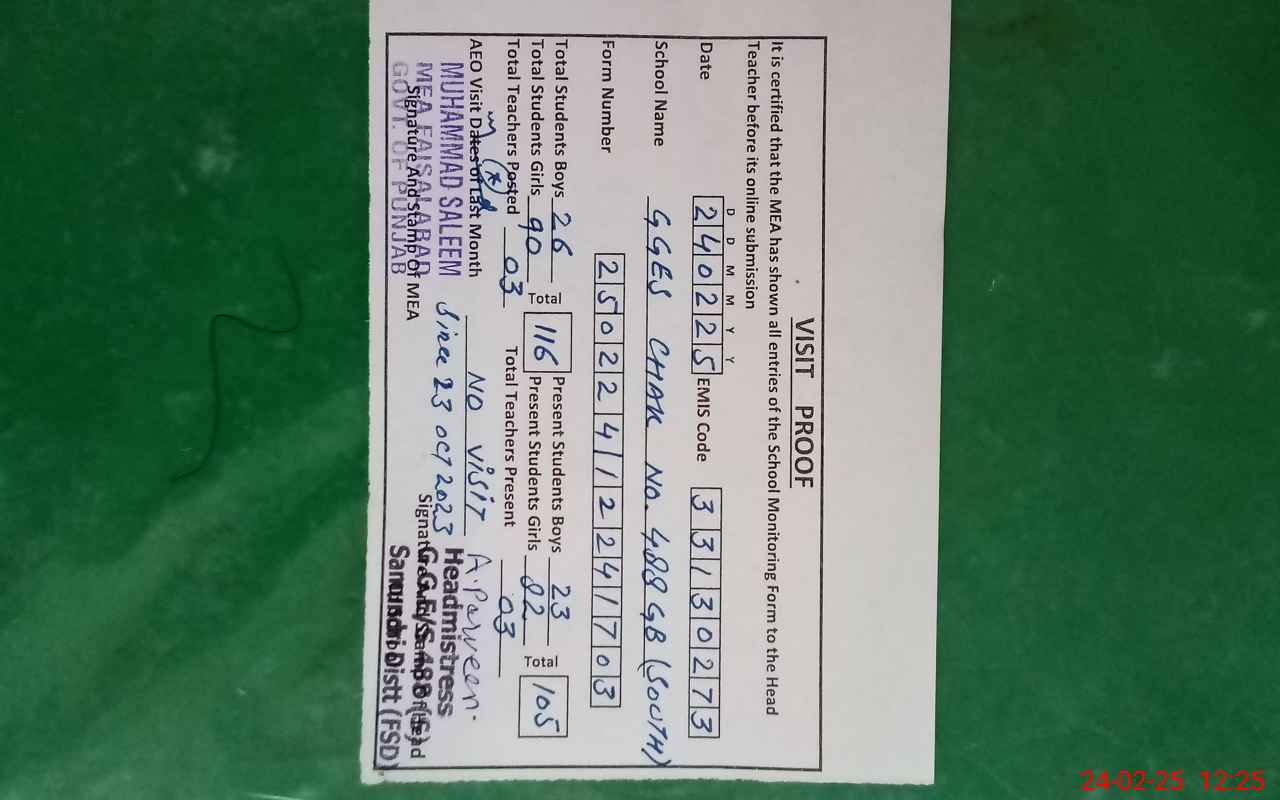 VISIT PROOF
It is certified that the MEA has shown all entries of the School Monitoring Form to the Head
Teacher before its online submission
D D M M Y Y
Date 240225 EMIS Code 33130273
School Name GGES CHAK NO. 488 GB (SOUTH)
Form Number 25022412241703
Total Students Boys 26 Present Students Boys 23
Total Students Girls 90 Total 116 Present Students Girls 82 Total 105
Total Teachers Posted 03 Total Teachers Present 03
AEO Visit Dates of Last Month NO VISIT A.Parveen.
Since 23 OCT 2023
MUHAMMAD SALEEM
MEA FAISALABAD
GOVT. OF PUNJAB
Signature And Stamp Of MEA
Headmistress
G.G.E/S 488 (G)
Signature And Stamp Of Head
Samundri Distt (FSD)
24-02-25 12:25